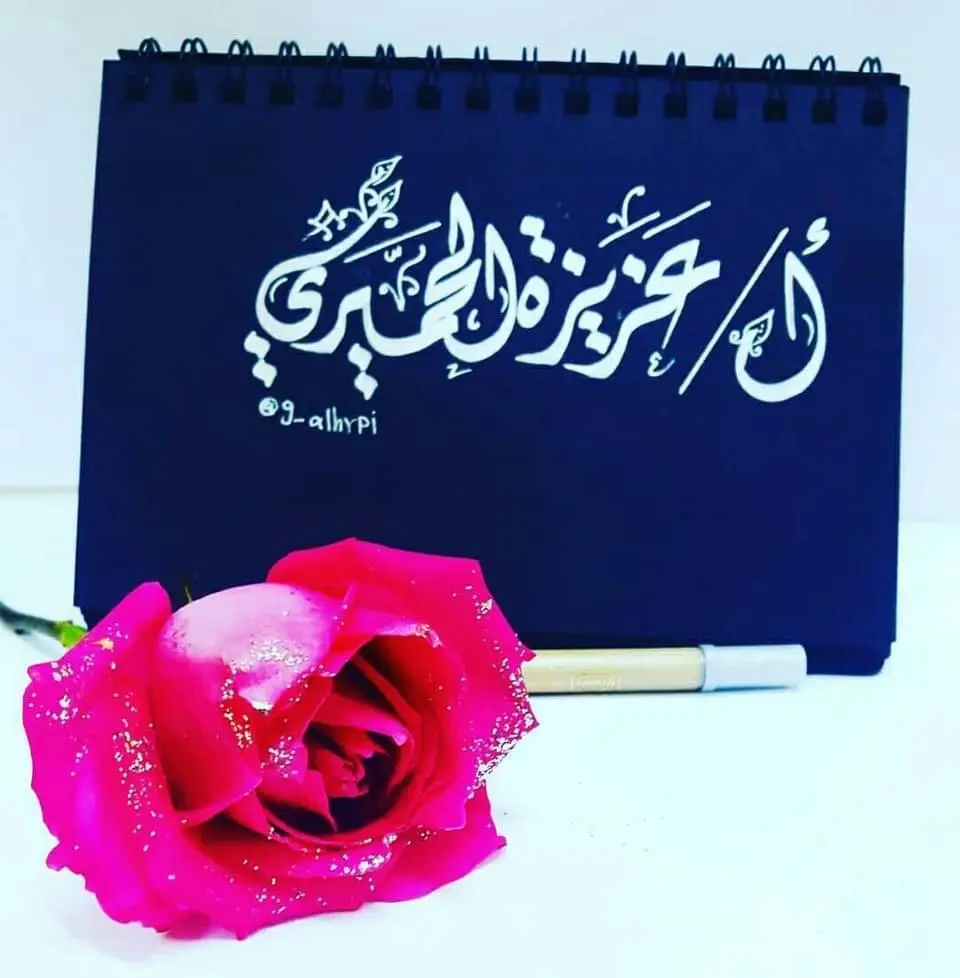 أ/ عزيزة الحميري
@g_alhrpi